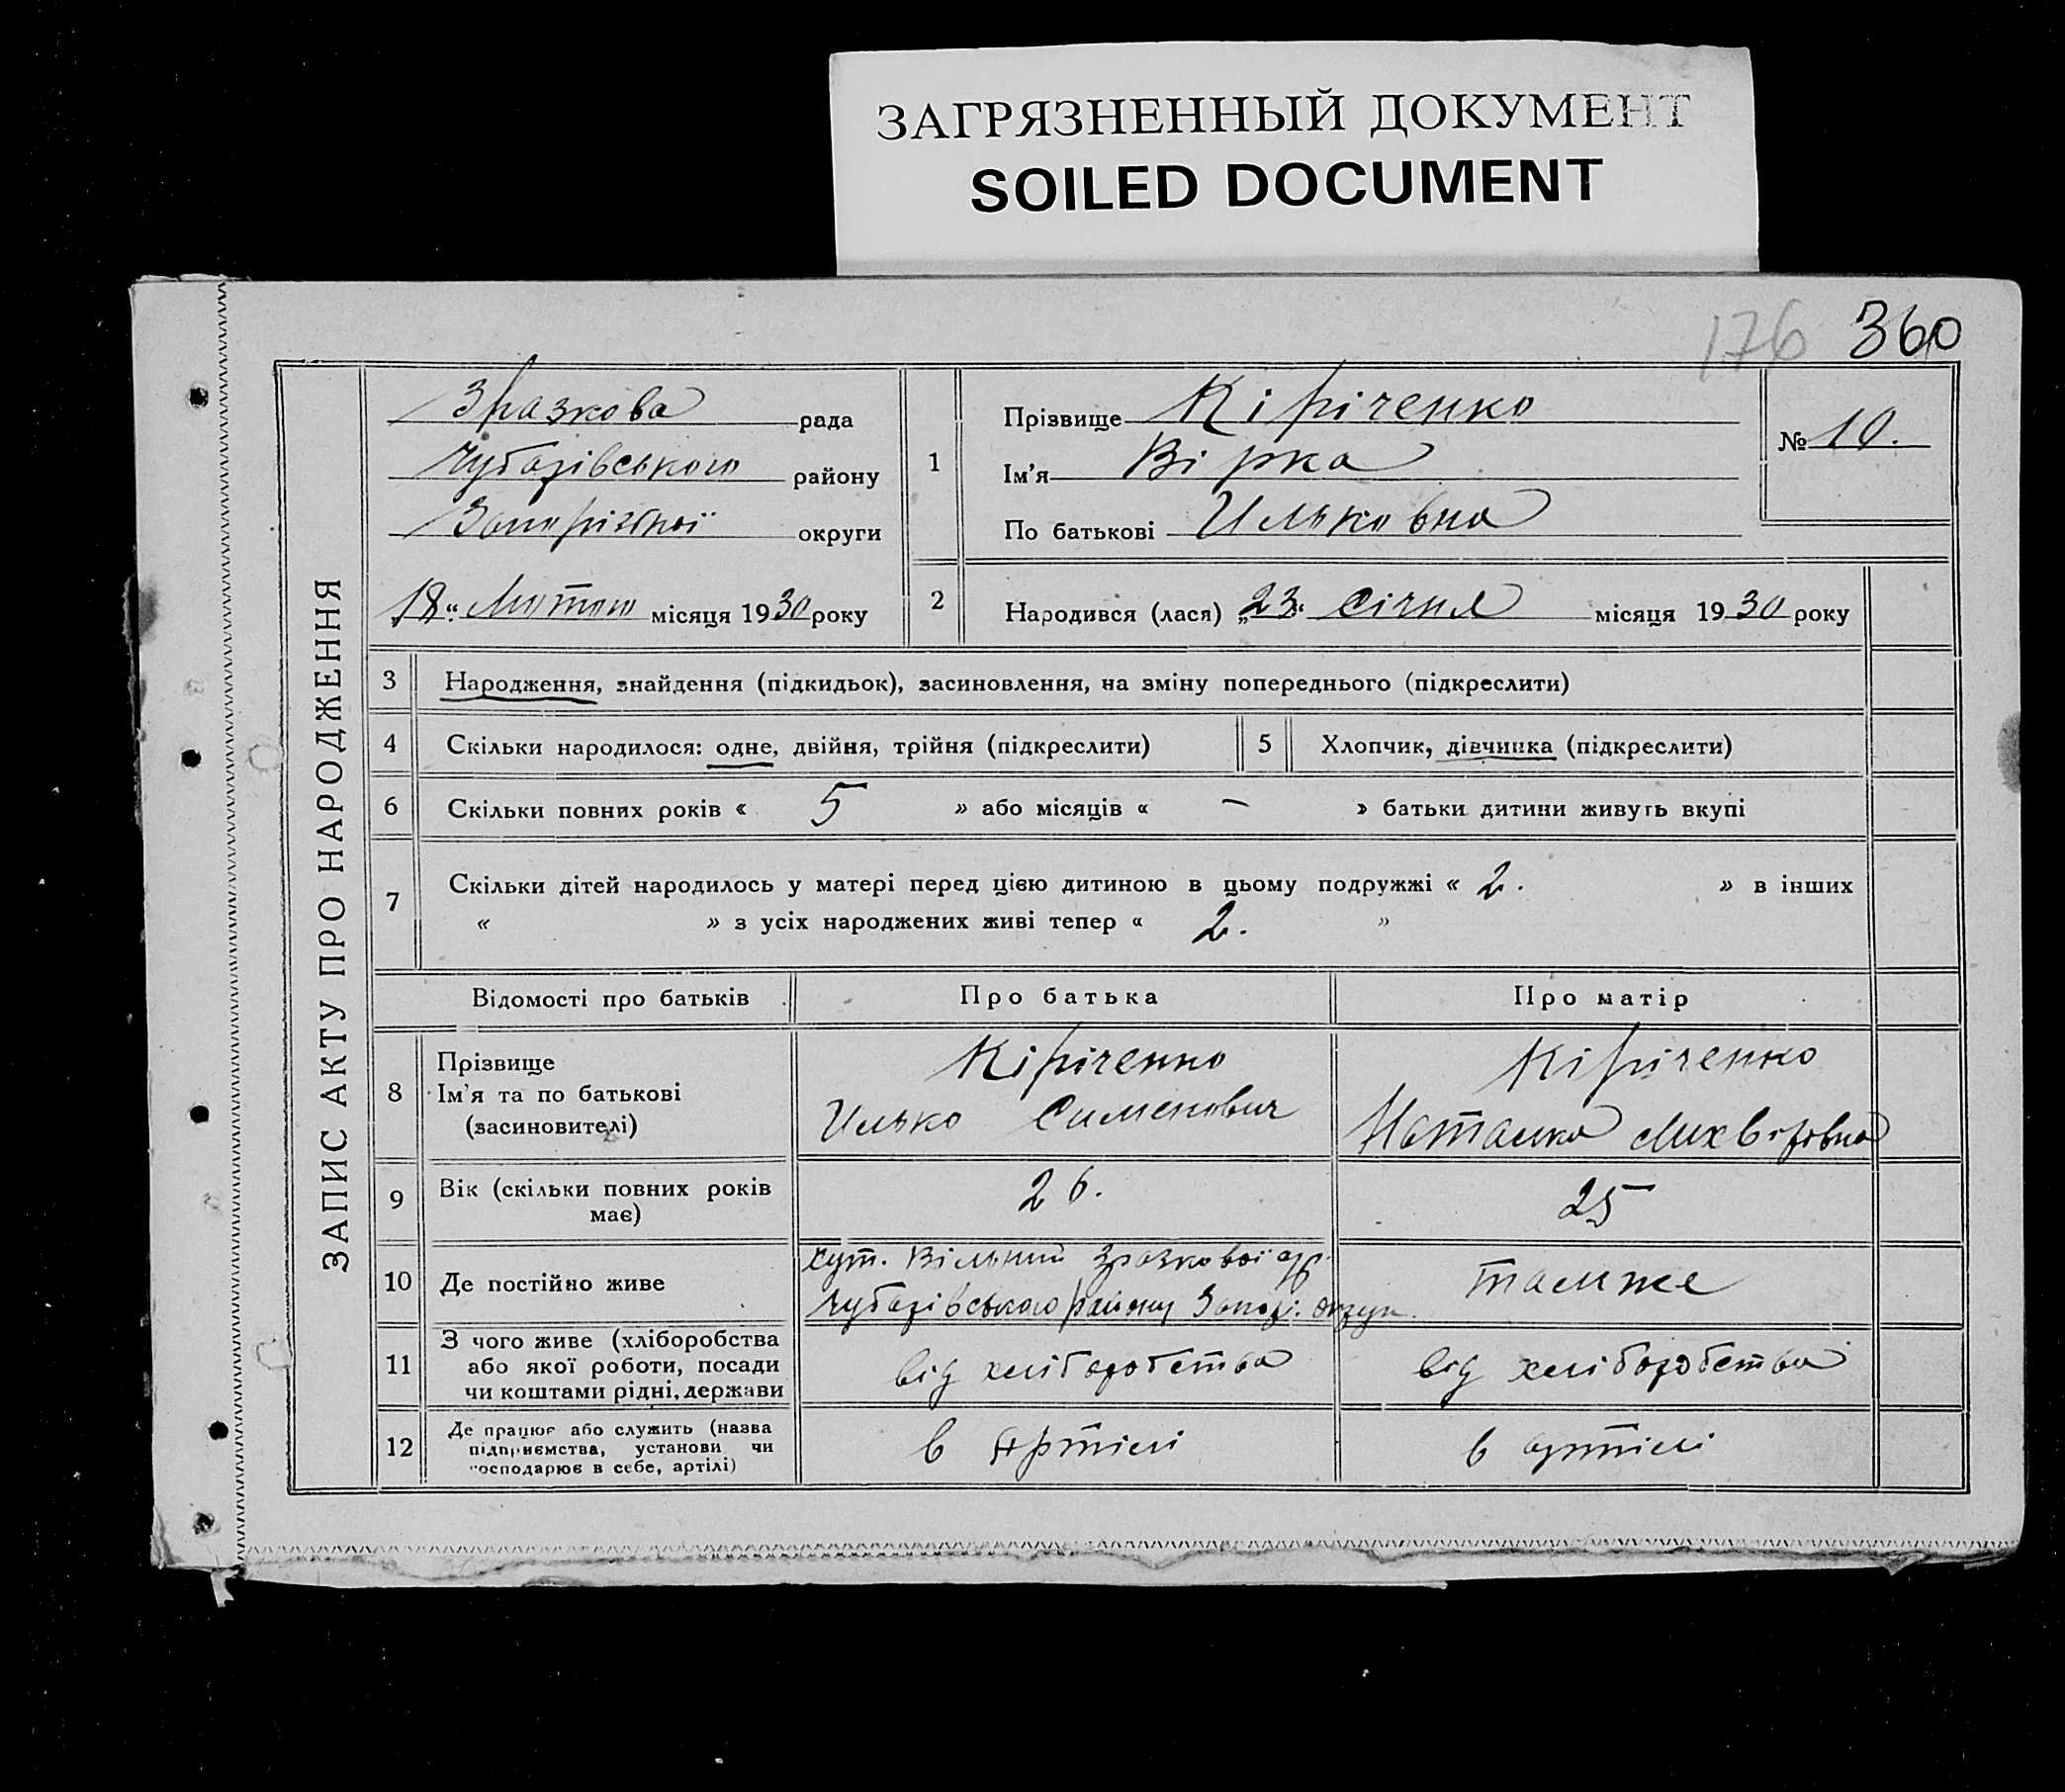 ЗАГРЯЗНЕННЫЙ ДОКУМЕНТ
SOILED DOCUMENT
176 360
ЗАПИС АКТУ ПРО НАРОДЖЕННЯ
Зразкова рада
Чубарівського району
Запоріжної округи
„18“ Лютого місяця 1930 року
1
Прізвище Кіріченко
Ім'я Вірка
По батькові Ильковна
№ 10.
2
Народився (лася) „23“ Січня місяця 1930 року
3 Народження, знайдення (підкидьок), засиновлення, на зміну попереднього (підкреслити)
4 Скільки народилося: одне, двійня, трійня (підкреслити)
5 Хлопчик, дівчинка (підкреслити)
6 Скільки повних років « 5 » або місяців « – » батьки дитини живуть вкупі
7 Скільки дітей народилось у матері перед цією дитиною в цьому подружжі « 2. » в інших
« » з усіх народжених живі тепер « 2. »
Відомості про батьків Про батька Про матір
8
Прізвище
Ім'я та по батькові
(засиновителі)
Кіріченко
Илько Сименович
Кіріченко
Наталка
9
Вік (скільки повних років
має)
26.
25
10 Де постійно живе
хут. Вільний Зразкової
Чубарівського району Запорі. округи
тамже
11
З чого живе (хліборобства
або якої роботи, посади
чи коштами рідні, держави
від хліборобства
від хліборобства
12
Де працює або служить (назва
підприємства, установи чи
господарює в себе, артілі)
в Артілі
в артілі